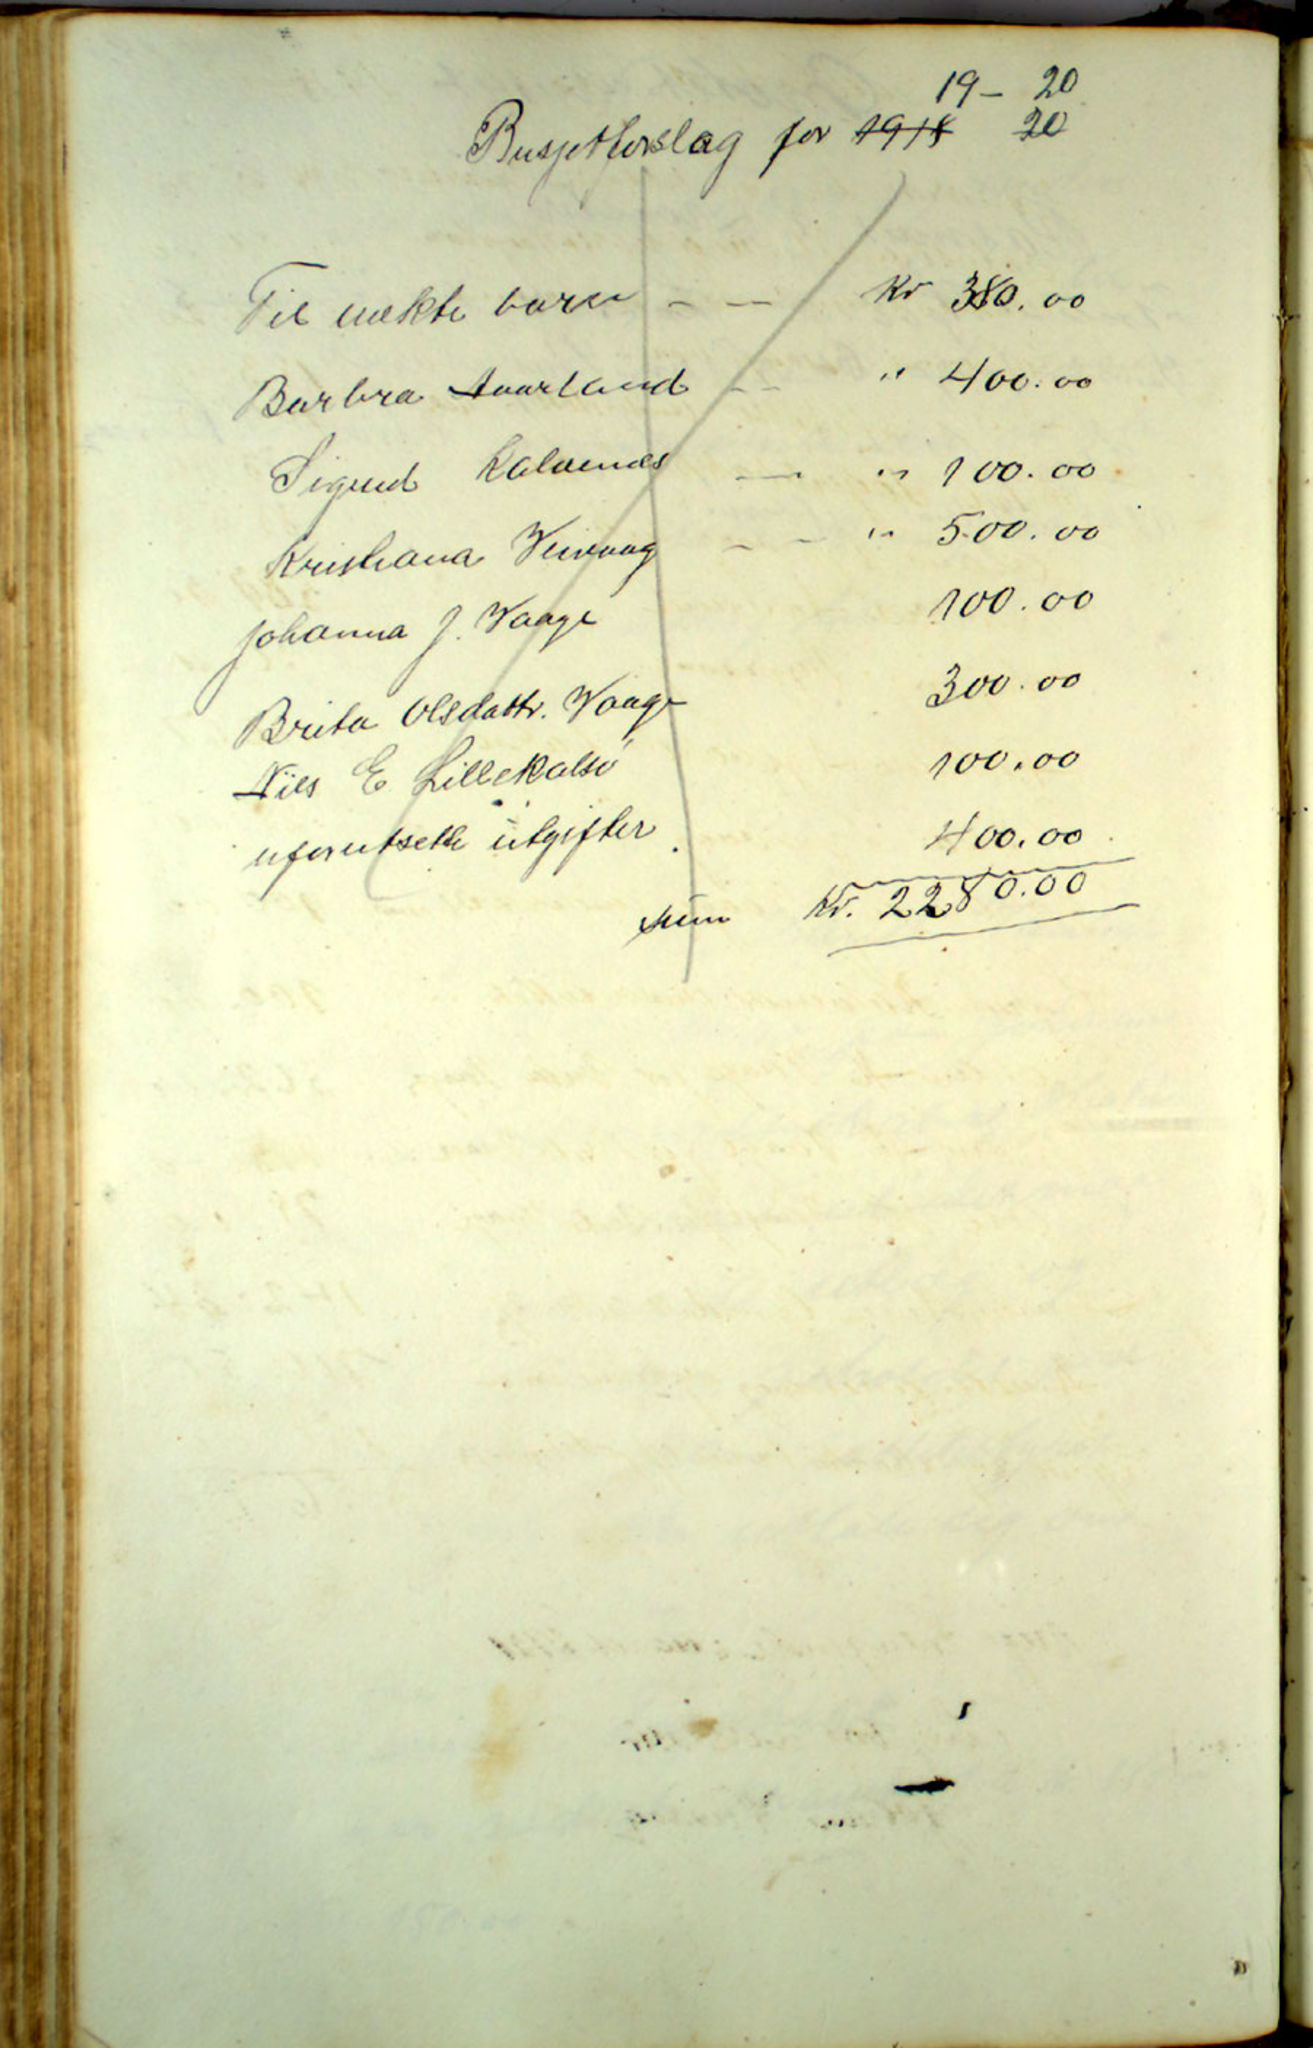 19 - 20
Busjetforslag for 1918 20
Til uækte barn - - Kr 380.00
Barbra Aaarland - - " 400.00
Sigrud Kalvenes - " 100.00
Kristiana Veivaag - - " 500.00
Johanna J. Vaage 100.00
Brita Olsdattr. Vaage 300.00
Nils E Lillekalsø 100.00
uforutsette utgifter 400.00
sum Kr. 2280.00